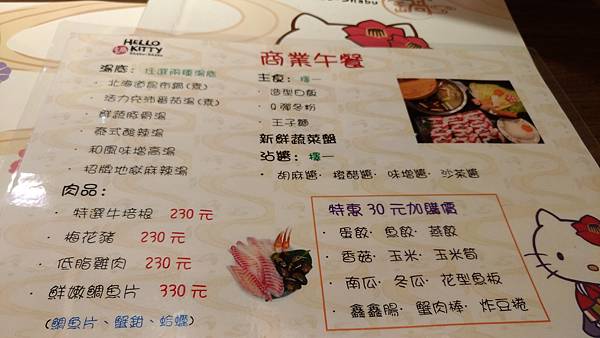 Shabu
鍋
HELLO
KITTY
Shabu-Shabu
商業午餐
湯底: 任選兩種湯底
· 北海道昆布鍋(素)
· 活力克沛番茄湯(素)
· 鮮蔬豚骨湯
· 泰式酸辣湯
· 和風味增高湯
· 招牌地獄麻辣湯
主食: 擇一
· 造型白飯
· Q彈冬粉
· 王子麵
新鮮蔬菜盤
沾醬: 擇一
· 胡麻醬· 橙醋醬· 味增醬· 沙茶醬
肉品:
· 特選牛培根 230元
· 梅花豬 230元
· 低脂雞肉 230元
· 鮮嫩鯛魚片 330元
(鯛魚片、蟹鉗、蛤蠣)
特惠30元加購價
· 蛋餃· 魚餃· 燕餃
· 香菇· 玉米· 玉米筍
· 南瓜· 冬瓜· 花型魚板
· 鑫鑫腸· 蟹肉棒· 炸豆捲